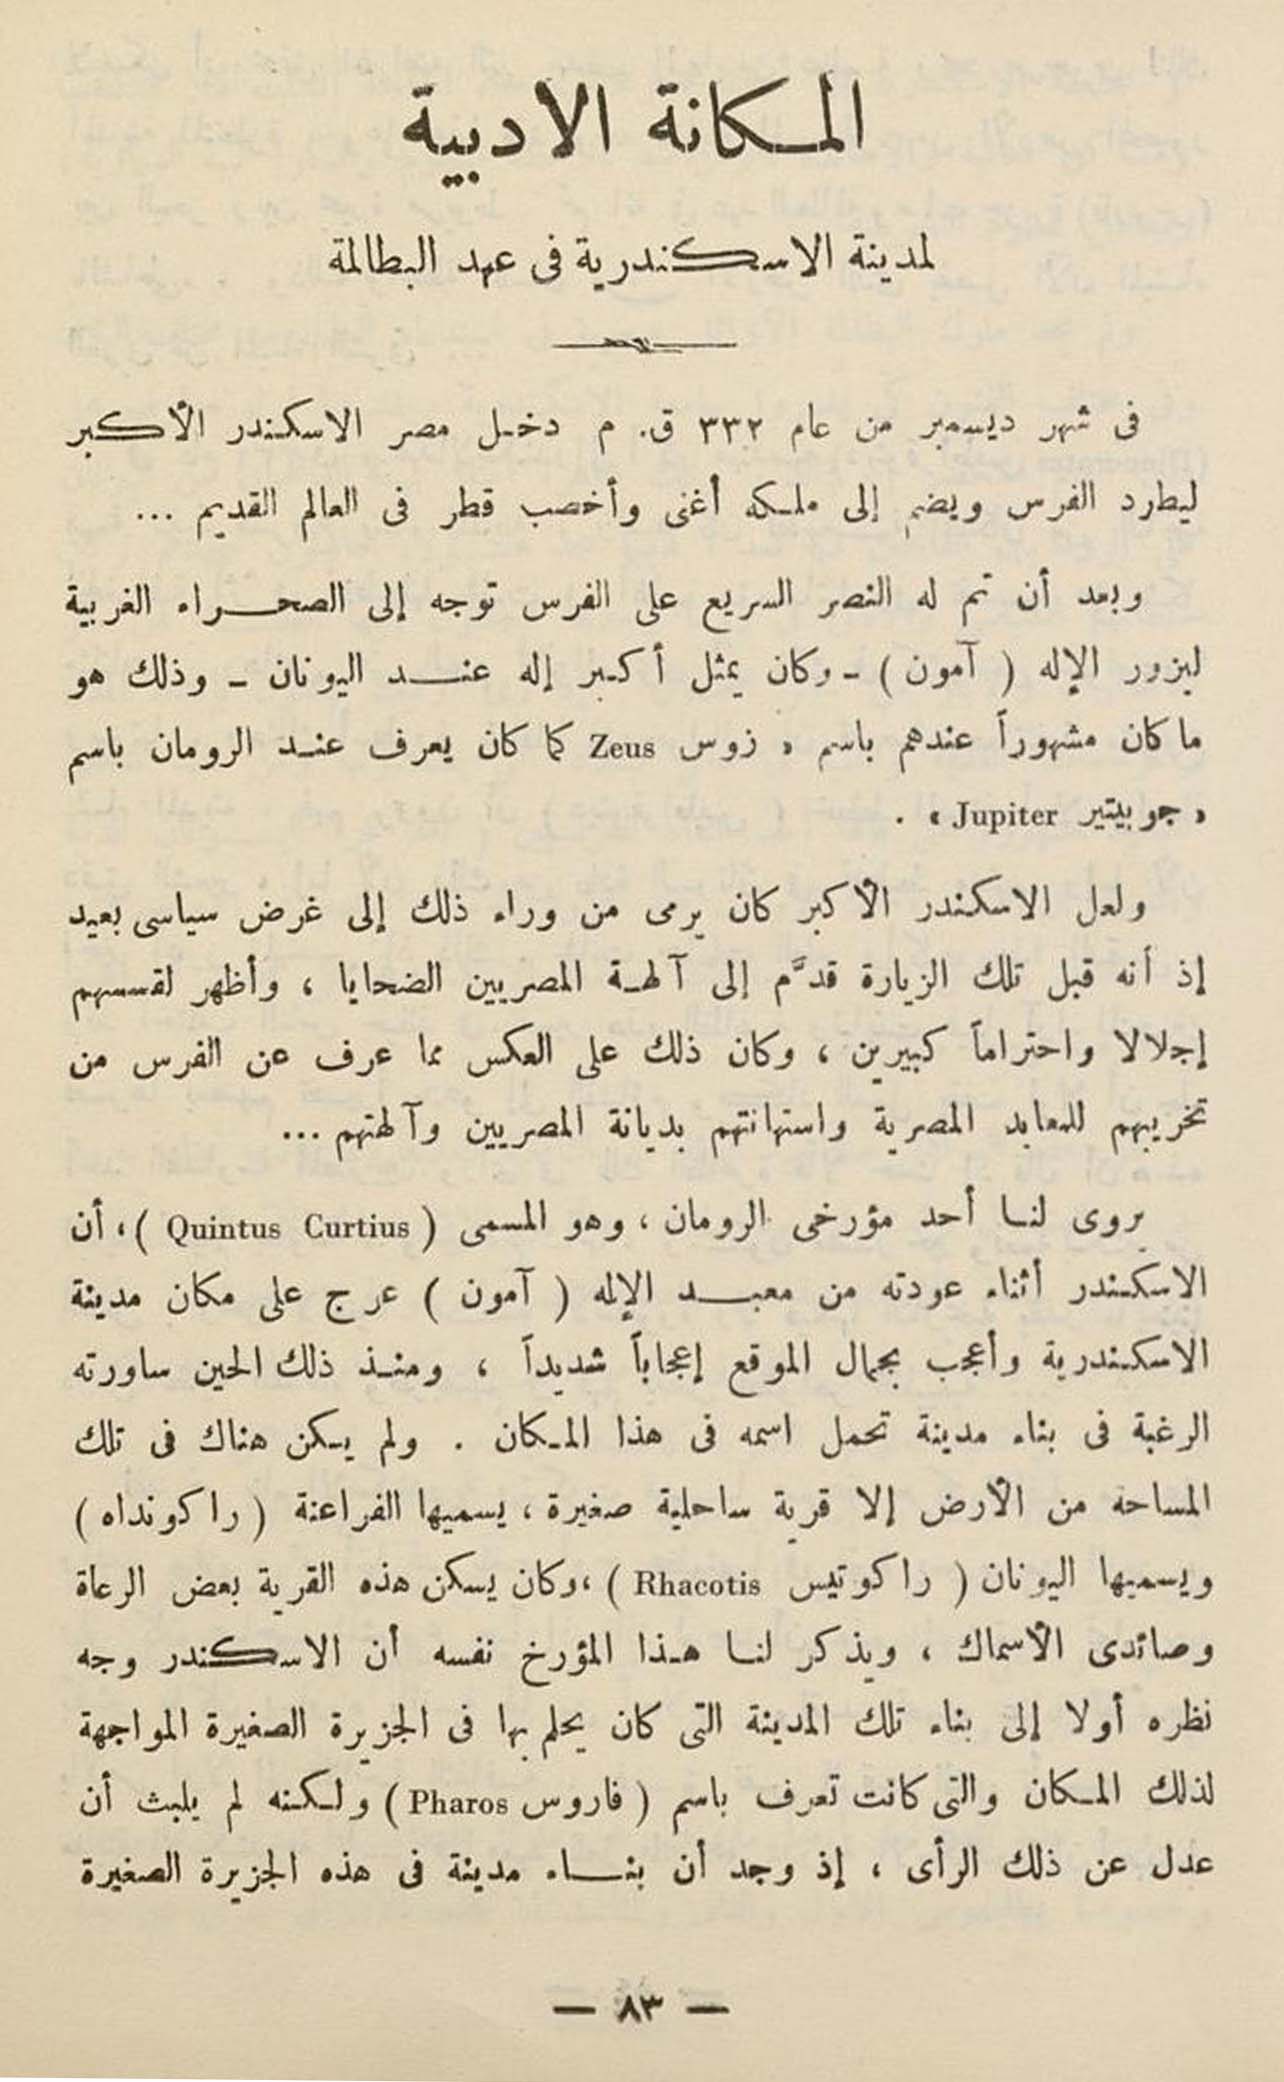 المكانة الأدبية
لمدينة الاسكندرية فى عهد البطالمة
فى شهر ديسمبر من عام ٣٣٢ ق. م دخل مصر الاسكندر الأكبر
ليطرد الفرس ويضم إلى ملكه أغنى وأخصب قطر فى العالم القديم ...
وبعد أن تم له النصر السريع على الفرس توجه إلى الصحراء الغربية
ليزور الإله ( آمون ) - وكان يمثل أكبر إله عند اليونان - وذلك هو
ما كان مشهوراً عندهم باسم « زوس Zeus كما كان يعرف عند الرومان باسم
« جوبيتير Jupiter » .
ولعل الاسكندر الأكبر كان يرمى من وراء ذلك إلى غرض سياسى بعيد
إذ أنه قبل تلك الزيارة قدَّم إلى آلهة المصريين الضحايا ، وأظهر لقسسهم
إجلالا واحتراماً كبيرين ، وكان ذلك على العكس مما عرف عن الفرس من
تخريبهم للمعابد المصرية واستهانتهم بديانة المصريين وآلهتهم ...
يروى لنا أحد مؤرخى الرومان ، وهو المسمى ( Quintus Curtius ) ، أن
الاسكندر أثناء عودته من معبد الإله ( آمون ) عرج على مكان مدينة
الاسكندرية وأعجب بجمال الموقع إعجاباً شديداً ، ومنذ ذلك الحين ساورته
الرغبة فى بناء مدينة تحمل اسمه فى هذا المكان . ولم يكن هناك فى تلك
المساحه من الأرض إلا قرية ساحلية صغيرة ، يسميها الفراعنة ( راكونداه )
ويسميها اليونان ( راكوتيس Rhacotis ) ، وكان يسكن هذه القرية بعض الرعاة
وصائدى الأسماك ، ويذكر لنا هذا المؤرخ نفسه أن الاسكندر وجه
نظره أولا إلى بناء تلك المدينة التى كان يحلم بها فى الجزيرة الصغيرة المواجهة
لذلك المكان والتى كانت تعرف باسم ( فاروس Pharos ) ولكنه لم يلبث أن
عدل عن ذلك الرأى ، إذ وجد أن بناء مدينة فى هذه الجزيرة الصغيرة
— ٨٣ —